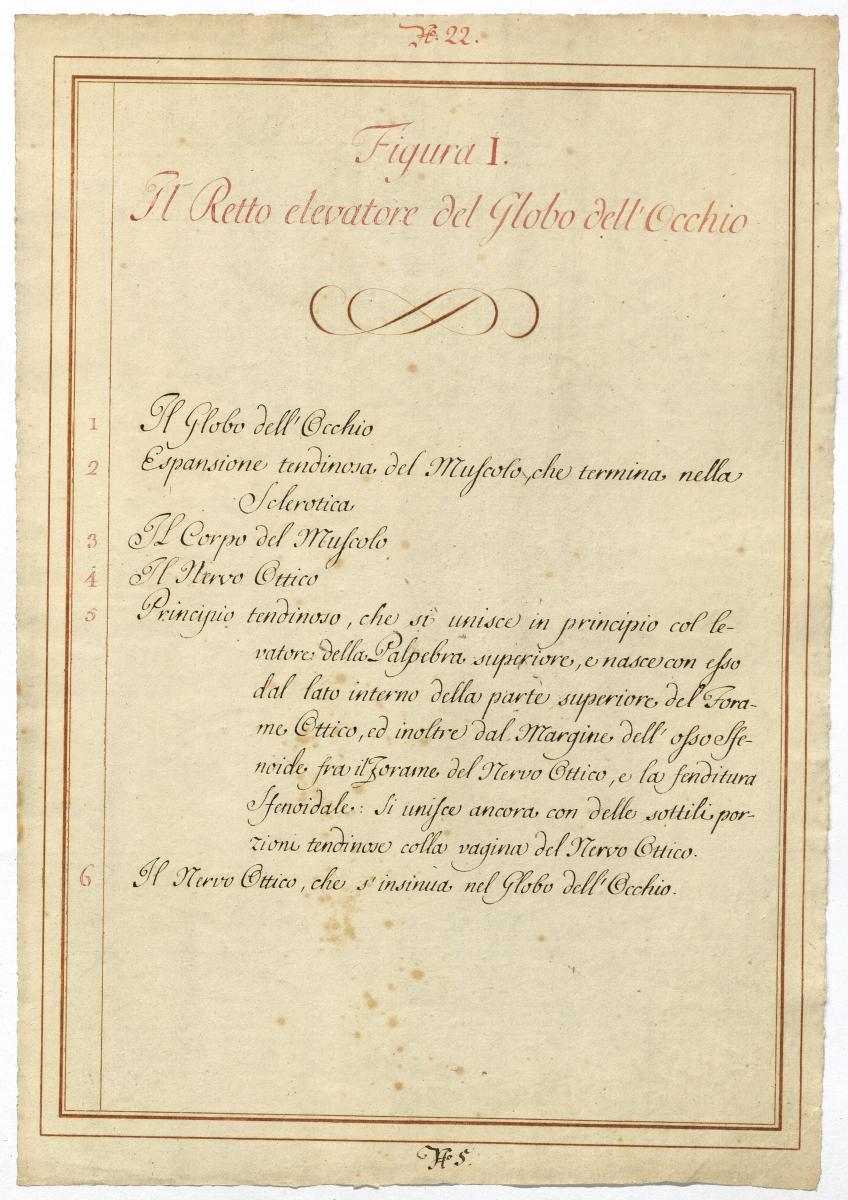 No. 22.
Figura I.
Il Retto elevatore del Globo dell'Occhio
1 Il Globo dell'Occhio
2 Espansione tendinosa del Muſcolo, che termina nella
Sclerotica
3 Il Corpo del Muſcolo
4 Il Nervo Ottico
5 Principio tendinoso, che si unisce in principio col le-
vatore della Palpebra superiore, e nasce con eſso
dal lato interno della parte superiore del Fora-
me Ottico, ed inoltre dal Margine dell' oſso Sfe-
noide fra il Forame del Nervo Ottico, e la fenditura
Sfenoidale: Si uniſce ancora con delle sottili por-
zioni tendinose colla vagina del Nervo Ottico.
6 Il Nervo Ottico, che s'insinua nel Globo dell'Occhio.
No. 5.